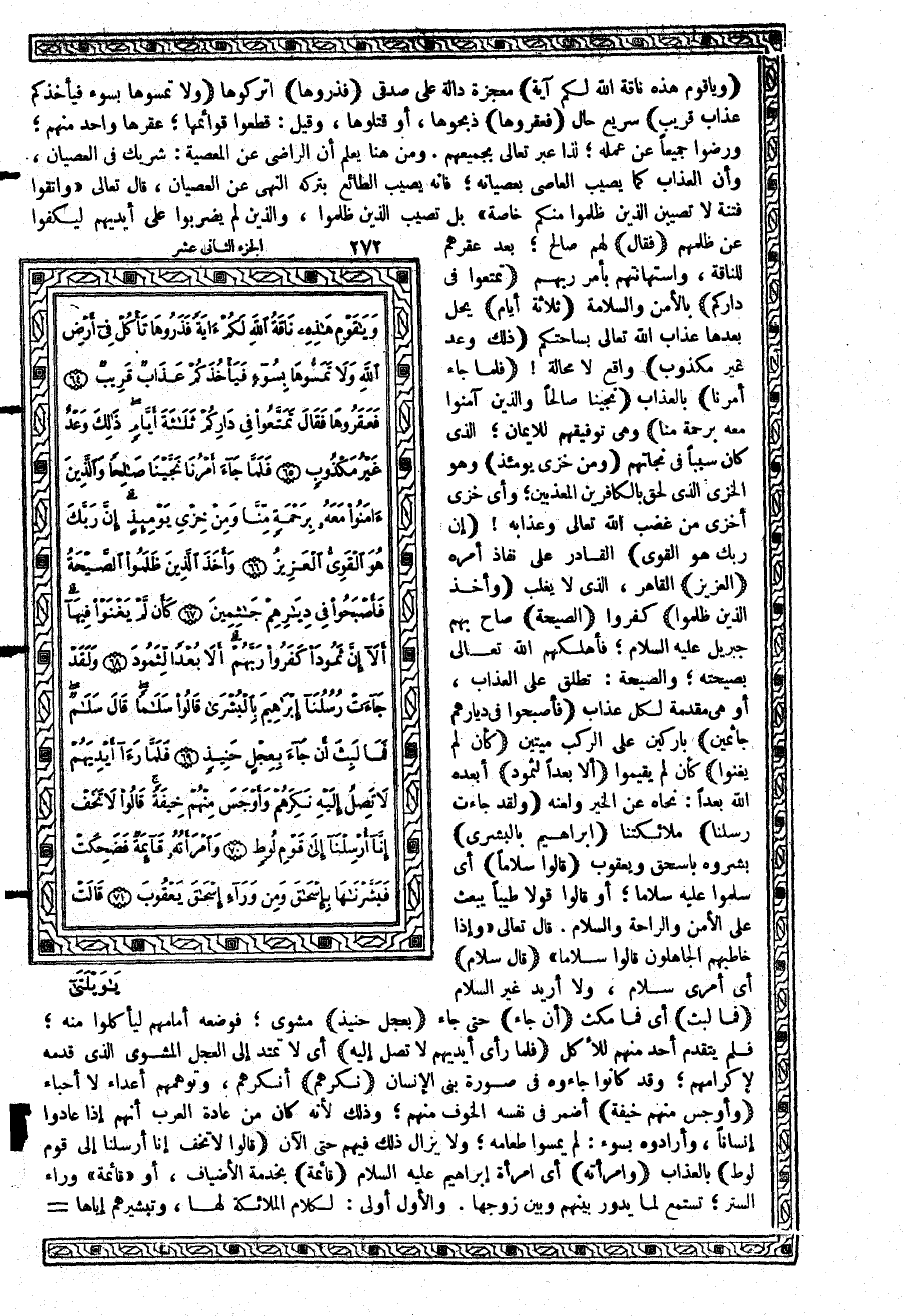 (وياقوم هذه ناقة الله لكم آية) معجزة دالة على صدقى (فذروها) اتركوها (ولا تمسوها بسوء فيأخذكم
عذاب قريب) سريع حال (فعقروها) ذبحوها ، أو قتلوها ، وقيل : قطعوا قوائمها ؛ عقرها واحد منهم ؛
ورضوا جميعاً عن عمله ؛ لذا عبر تعالى بجميعهم . ومن هنا يعلم أن الراضى عن المعصية : شريك فى العصيان ،
وأن العذاب كما يصيب العاصى بعصيانه ؛ فانه يصيب الطائع بتركه النهى عن العصيان ، قال تعالى «واتقوا
فتنة لا تصيبن الذين ظلموا منكم خاصة» بل تصيب الذين ظلموا ، والذين لم يضربوا على أيديهم ليكفوا
عن ظلمهم (فقال) لهم صالح ؛ بعد عقرهم
للناقة ، واستهانتهم بأمر ربهم (تمتعوا فى
داركم) بالأمن والسلامة (ثلاثة أيام) يحل
بعدها عذاب الله تعالى بساحتكم (ذلك وعد
غير مكذوب) واقع لا محالة ! (فلما جاء
أمرنا) بالعذاب (نجينا صالحاً والذين آمنوا
معه برحمة منا) وهى توفيقهم للايمان ؛ الذى
كان سبباً فى نجاتهم (ومن خزى يومئذ) وهو
الخزى الذى لحق بالكافرين المعذبين؛ وأى خزى
أخزى من غضب الله تعالى وعذابه ! (إن
ربك هو القوى) القادر على نفاذ أمره
(العزيز) القاهر ، الذى لا يغلب (وأخذ
الذين ظلموا) كفروا (الصيحة) صاح بهم
جبريل عليه السلام ؛ فأهلكهم الله تعالى
بصيحته ؛ والصيحة : تطلق على العذاب ،
أو هى مقدمة لكل عذاب (فأصبحوا فى ديارهم
جاثمين) باركين على الركب ميتين (كأن لم
يغنوا) كأن لم يقيموا (ألا بعداً لثمود) أبعده
الله بعداً : نحاه عن الخير ولعنه (ولقد جاءت
رسلنا) ملائكتنا (ابراهيم بالبشرى)
بشروه باسحق ويعقوب (قالوا سلاماً) أى
سلموا عليه سلاما ؛ أو قالوا قولا طيباً يبعث
على الأمن والراحة والسلام . قال تعالى «وإذا
خاطبهم الجاهلون قالوا سلاما» (قال سلام)
أى أمرى سلام ، ولا أريد غير السلام
٢٧٢ الجزء الثانى عشر
وَيَٰقَوۡمِ هَٰذِهِۦ نَاقَةُ ٱللَّهِ لَكُمۡ ءَايَةٗ فَذَرُوهَا تَأۡكُلۡ فِيٓ أَرۡضِ
ٱللَّهِ وَلَا تَمَسُّوهَا بِسُوٓءٖ فَيَأۡخُذَكُمۡ عَذَابٞ قَرِيبٞ ٦٤
فَعَقَرُوهَا فَقَالَ تَمَتَّعُواْ فِي دَارِكُمۡ ثَلَٰثَةَ أَيَّامٖۖ ذَٰلِكَ وَعۡدٌ
غَيۡرُ مَكۡذُوبٖ ٦٥ فَلَمَّا جَآءَ أَمۡرُنَا نَجَّيۡنَا صَٰلِحٗا وَٱلَّذِينَ
ءَامَنُواْ مَعَهُۥ بِرَحۡمَةٖ مِّنَّا وَمِنۡ خِزۡيِ يَوۡمِئِذٍۗ إِنَّ رَبَّكَ
هُوَ ٱلۡقَوِيُّ ٱلۡعَزِيزُ ٦٦ وَأَخَذَ ٱلَّذِينَ ظَلَمُواْ ٱلصَّيۡحَةُ
فَأَصۡبَحُواْ فِي دِيَٰرِهِمۡ جَٰثِمِينَ ٦٧ كَأَن لَّمۡ يَغۡنَوۡاْ فِيهَآۗ
أَلَآ إِنَّ ثَمُودَاْ كَفَرُواْ رَبَّهُمۡۗ أَلَا بُعۡدٗا لِّثَمُودَ ٦٨ وَلَقَدۡ
جَآءَتۡ رُسُلُنَآ إِبۡرَٰهِيمَ بِٱلۡبُشۡرَىٰ قَالُواْ سَلَٰمٗاۖ قَالَ سَلَٰمٞۖ
فَمَا لَبِثَ أَن جَآءَ بِعِجۡلٍ حَنِيذٖ ٦٩ فَلَمَّا رَءَآ أَيۡدِيَهُمۡ
لَا تَصِلُ إِلَيۡهِ نَكِرَهُمۡ وَأَوۡجَسَ مِنۡهُمۡ خِيفَةٗۚ قَالُواْ لَا تَخَفۡ
إِنَّآ أُرۡسِلۡنَآ إِلَىٰ قَوۡمِ لُوطٖ ٧٠ وَٱمۡرَأَتُهُۥ قَآئِمَةٞ فَضَحِكَتۡ
فَبَشَّرۡنَٰهَا بِإِسۡحَٰقَ وَمِن وَرَآءِ إِسۡحَٰقَ يَعۡقُوبَ ٧١ قَالَتۡ
يَٰوَيۡلَتَىٰٓ
(فما لبث) أى فما مكث (أن جاء) حتى جاء (بعجل حنيذ) مشوى ؛ فوضعه أمامهم ليأكلوا منه ؛
فلم يتقدم أحد منهم للأكل (فلما رأى أيديهم لا تصل إليه) أى لا تمتد إلى العجل المشوى الذى قدمه
لإكرامهم ؛ وقد كانوا جاءوه فى صورة بنى الإنسان (نكرهم) أنكرهم ، وتوهمهم أعداء لا أحباء
(وأوجس منهم خيفة) أضمر فى نفسه الخوف منهم ؛ وذلك لأنه كان من عادة العرب أنهم إذا عادوا
إنساناً ، وأرادوه بسوء : لم يمسوا طعامه ؛ ولا يزال ذلك فيهم حتى الآن (قالوا لاتخف إنا أرسلنا إلى قوم
لوط) بالعذاب (وامرأته) أى امرأة إبراهيم عليه السلام (قائمة) بخدمة الأضياف ، أو «قائمة» وراء
الستر ؛ تستمع لما يدور بينهم وبين زوجها . والأول أولى : لكلام الملائكة لها ، وتبشيرهم إياها =